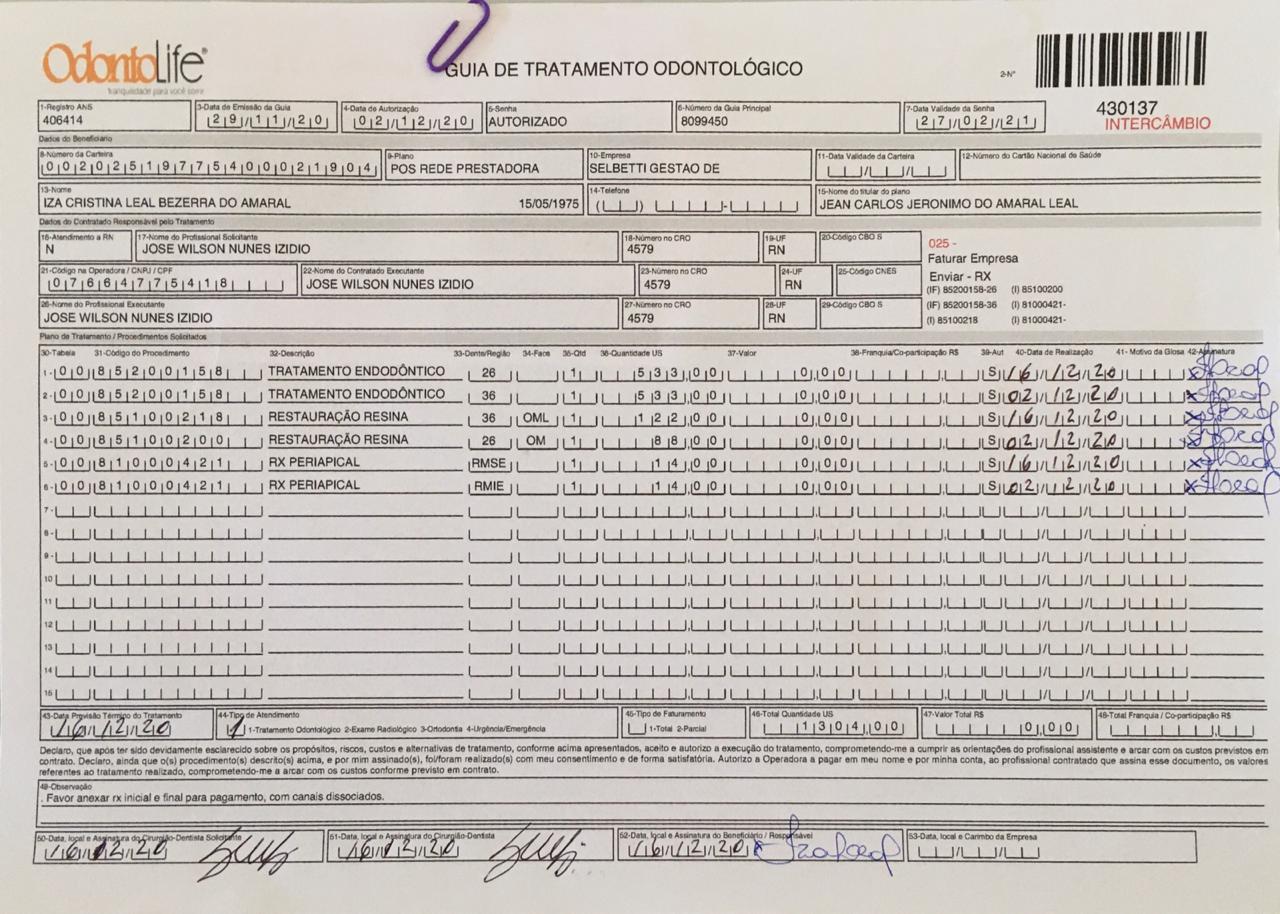 OdontoLife®
tranquilidade para você sorrir
GUIA DE TRATAMENTO ODONTOLÓGICO
2-Nº
430137
INTERCÂMBIO
1-Registro ANS
406414
3-Data de Emissão da Guia
29/11/20
4-Data de Autorização
02/12/20
5-Senha
AUTORIZADO
6-Número da Guia Principal
8099450
7-Data Validade da Senha
27/02/21
Dados do Beneficiário
8-Número da Carteira
00202519775400021904
9-Plano
POS REDE PRESTADORA
10-Empresa
SELBETTI GESTAO DE
11-Data Validade da Carteira
12-Número do Cartão Nacional de Saúde
13-Nome
IZA CRISTINA LEAL BEZERRA DO AMARAL 15/05/1975
14-Telefone
15-Nome do titular do plano
JEAN CARLOS JERONIMO DO AMARAL LEAL
Dados do Contratado Responsável pelo Tratamento
16-Atendimento a RN
N
17-Nome do Profissional Solicitante
JOSE WILSON NUNES IZIDIO
18-Número no CRO
4579
19-UF
RN
20-Código CBO S
025 -
Faturar Empresa
Enviar - RX
(IF) 85200158-26 (I) 85100200
(IF) 85200158-36 (I) 81000421-
(I) 85100218 (I) 81000421-
21-Código na Operadora / CNPJ / CPF
07664775418
22-Nome do Contratado Executante
JOSE WILSON NUNES IZIDIO
23-Número no CRO
4579
24-UF
RN
25-Código CNES
26-Nome do Profissional Executante
JOSE WILSON NUNES IZIDIO
27-Número no CRO
4579
28-UF
RN
29-Código CBO S
Plano de Tratamento / Procedimentos Solicitados
30-Tabela 31-Código do Procedimento 32-Descrição 33-Dente/Região 34-Face 35-Qtd 36-Quantidade US 37-Valor 38-Franquia/Co-participação R$ 39-Aut 40-Data de Realização 41- Motivo da Glosa 42-Assinatura
1- 00 85200158 TRATAMENTO ENDODÔNTICO 26 1 533,00 0,00 S 16/12/20
2- 00 85200158 TRATAMENTO ENDODÔNTICO 36 1 533,00 0,00 S 02/12/20
3- 00 85100218 RESTAURAÇÃO RESINA 36 OML 1 122,00 0,00 S 16/12/20
4- 00 85100200 RESTAURAÇÃO RESINA 26 OM 1 88,00 0,00 S 02/12/20
5- 00 81000421 RX PERIAPICAL RMSE 1 14,00 0,00 S 16/12/20
6- 00 81000421 RX PERIAPICAL RMIE 1 14,00 0,00 S 02/12/20
7-
8-
9-
10
11
12
13
14
15
43-Data Previsão Término do Tratamento
16/12/20
44-Tipo de Atendimento
1 1-Tratamento Odontológico 2-Exame Radiológico 3-Ortodontia 4-Urgência/Emergência
45-Tipo de Faturamento
1-Total 2-Parcial
46-Total Quantidade US
1304,00
47-Valor Total R$
0,00
48-Total Franquia / Co-participação R$
Declaro, que após ter sido devidamente esclarecido sobre os propósitos, riscos, custos e alternativas de tratamento, conforme acima apresentados, aceito e autorizo a execução do tratamento, comprometendo-me a cumprir as orientações do profissional assistente e arcar com os custos previstos em
contrato. Declaro, ainda que o(s) procedimento(s) descrito(s) acima, e por mim assinado(s), foi/foram realizado(s) com meu consentimento e de forma satisfatória. Autorizo a Operadora a pagar em meu nome e por minha conta, ao profissional contratado que assina esse documento, os valores
referentes ao tratamento realizado, comprometendo-me a arcar com os custos conforme previsto em contrato.
49-Observação
. Favor anexar rx inicial e final para pagamento, com canais dissociados.
50-Data, local e Assinatura do Cirurgião-Dentista Solicitante
16/12/20
51-Data, local e Assinatura do Cirurgião-Dentista
16/12/20
52-Data, local e Assinatura do Beneficiário / Responsável
16/12/20
53-Data, local e Carimbo da Empresa